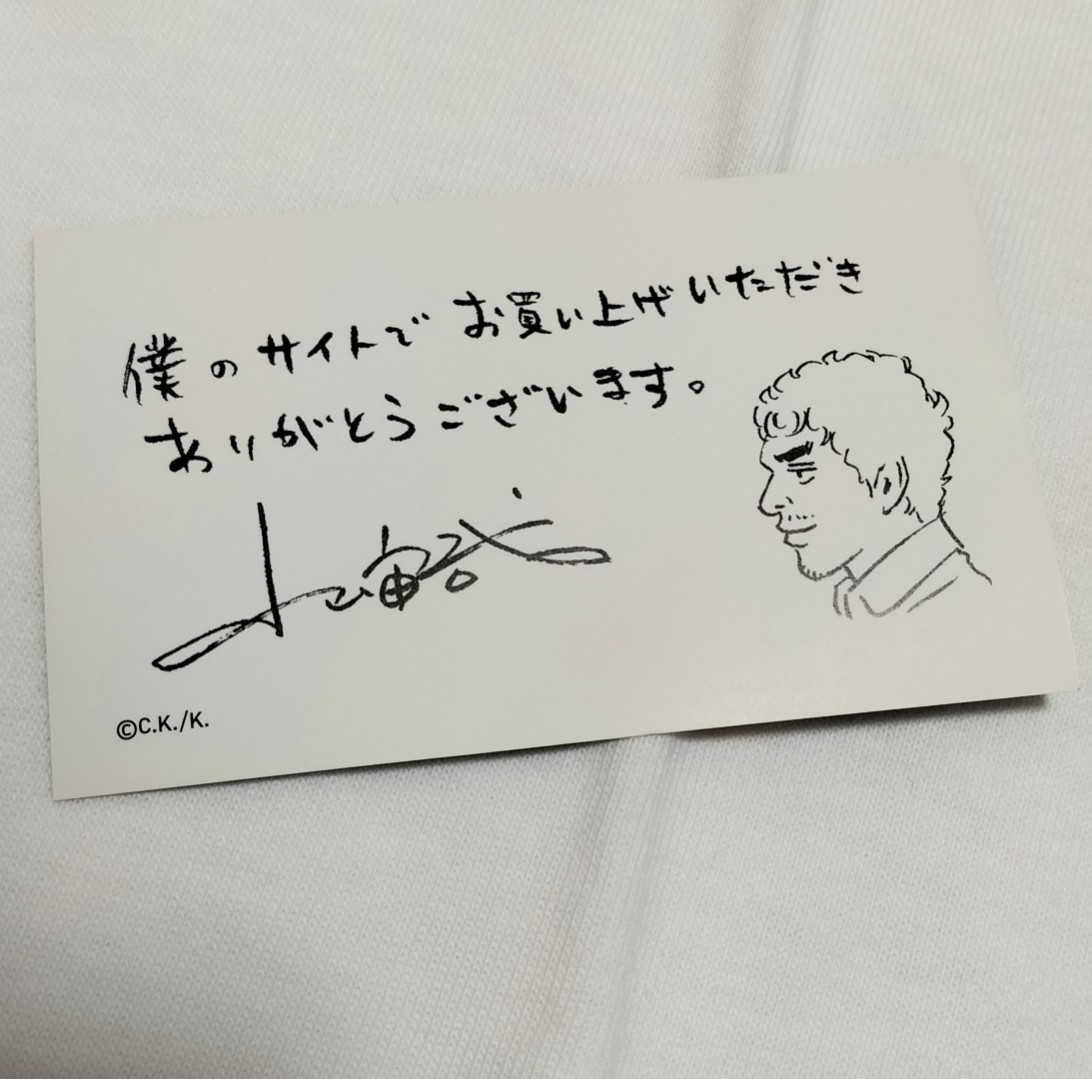 僕のサイトでお買い上げいただき
ありがとうございます。
©C.K./K.